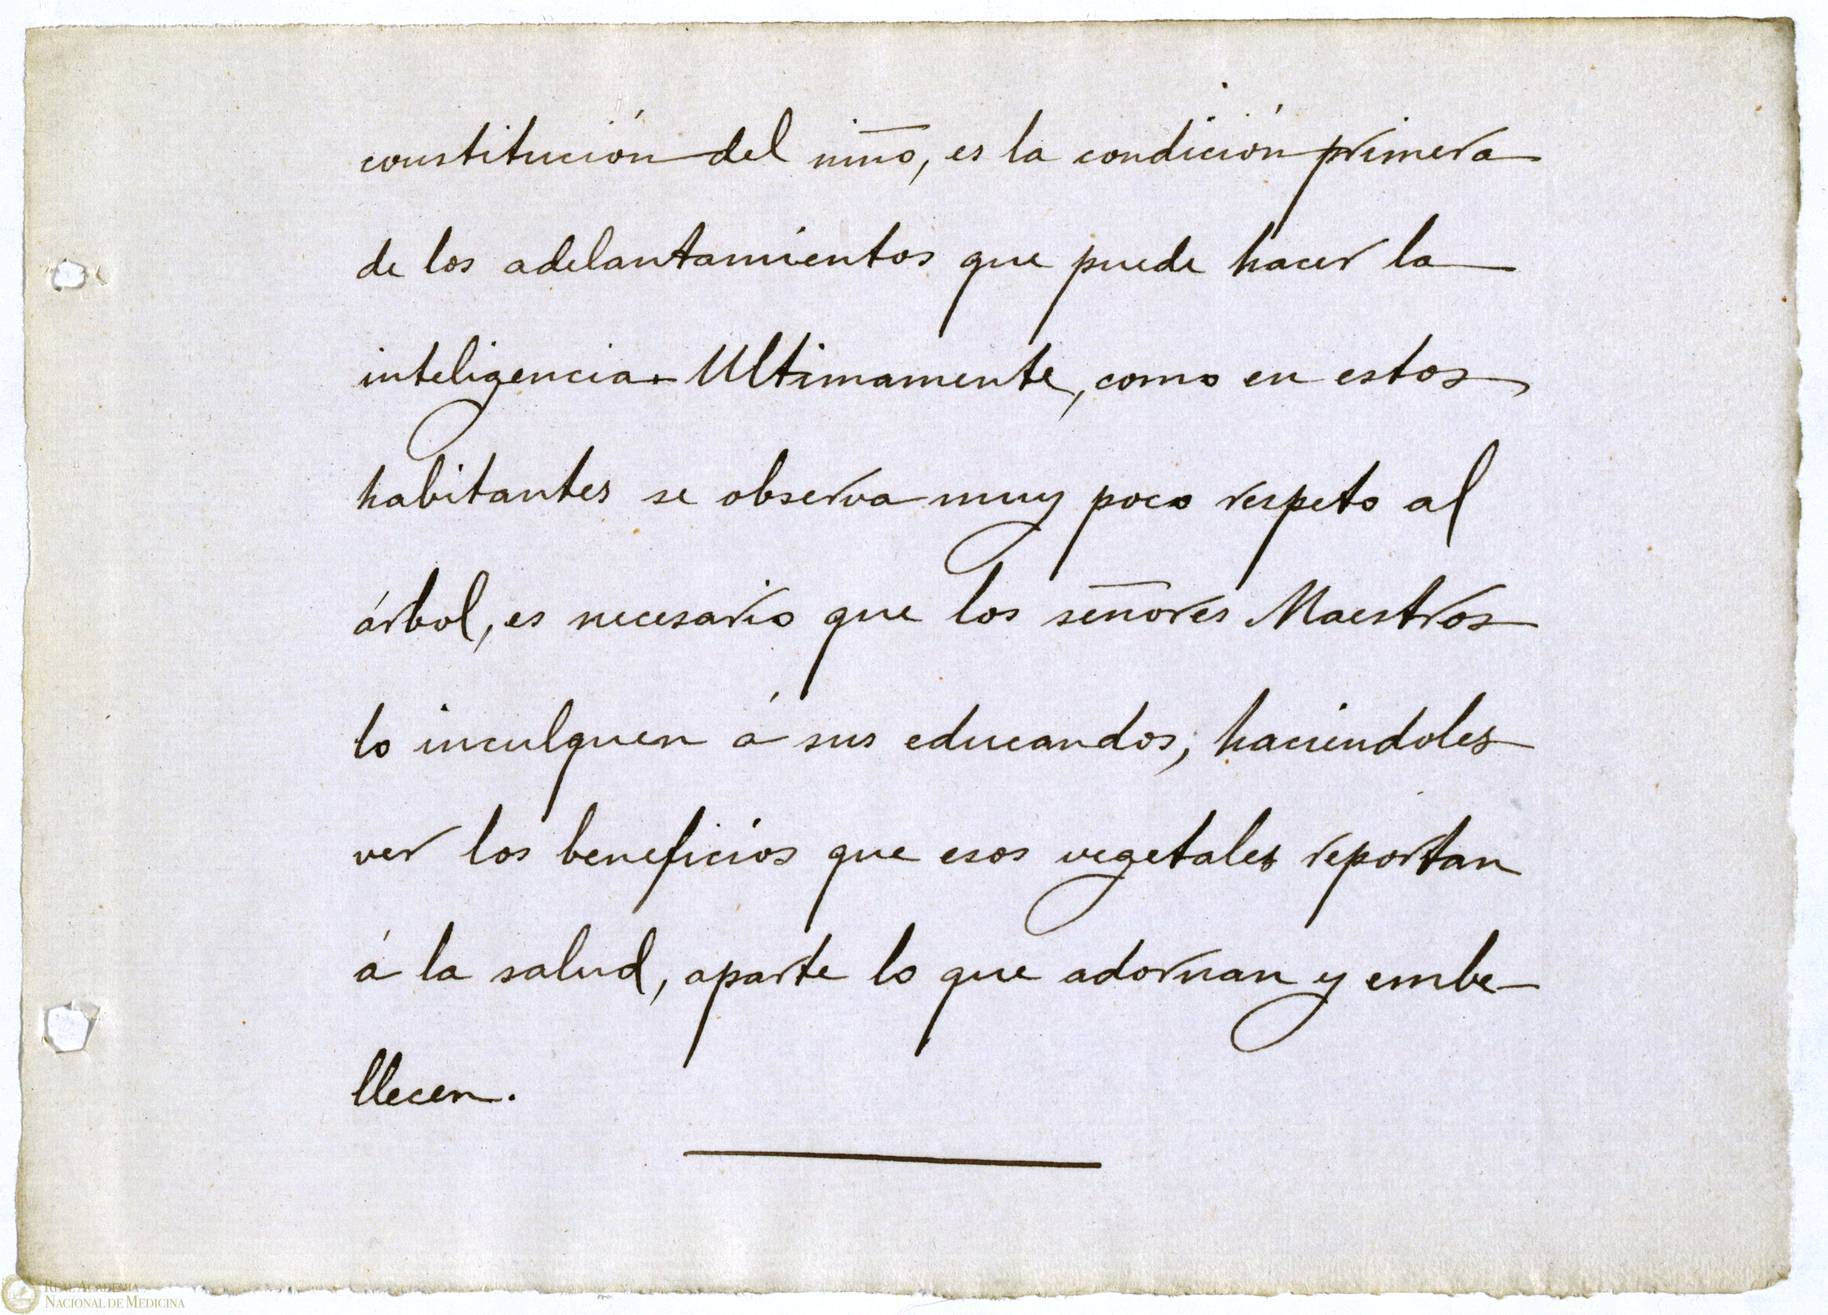 constitución del niño, es la condición primera
de los adelantamientos que puede hacer la
inteligencia. Ultimamente, como en estos
habitantes se observa muy poco respeto al
árbol, es necesario que los señores Maestros
lo inculquen á sus educandos, haciendoles
ver los beneficios que esos vegetales reportan
á la salud, aparte lo que adornan y embe-
llecen.
REAL ACADEMIA
NACIONAL DE MEDICINA